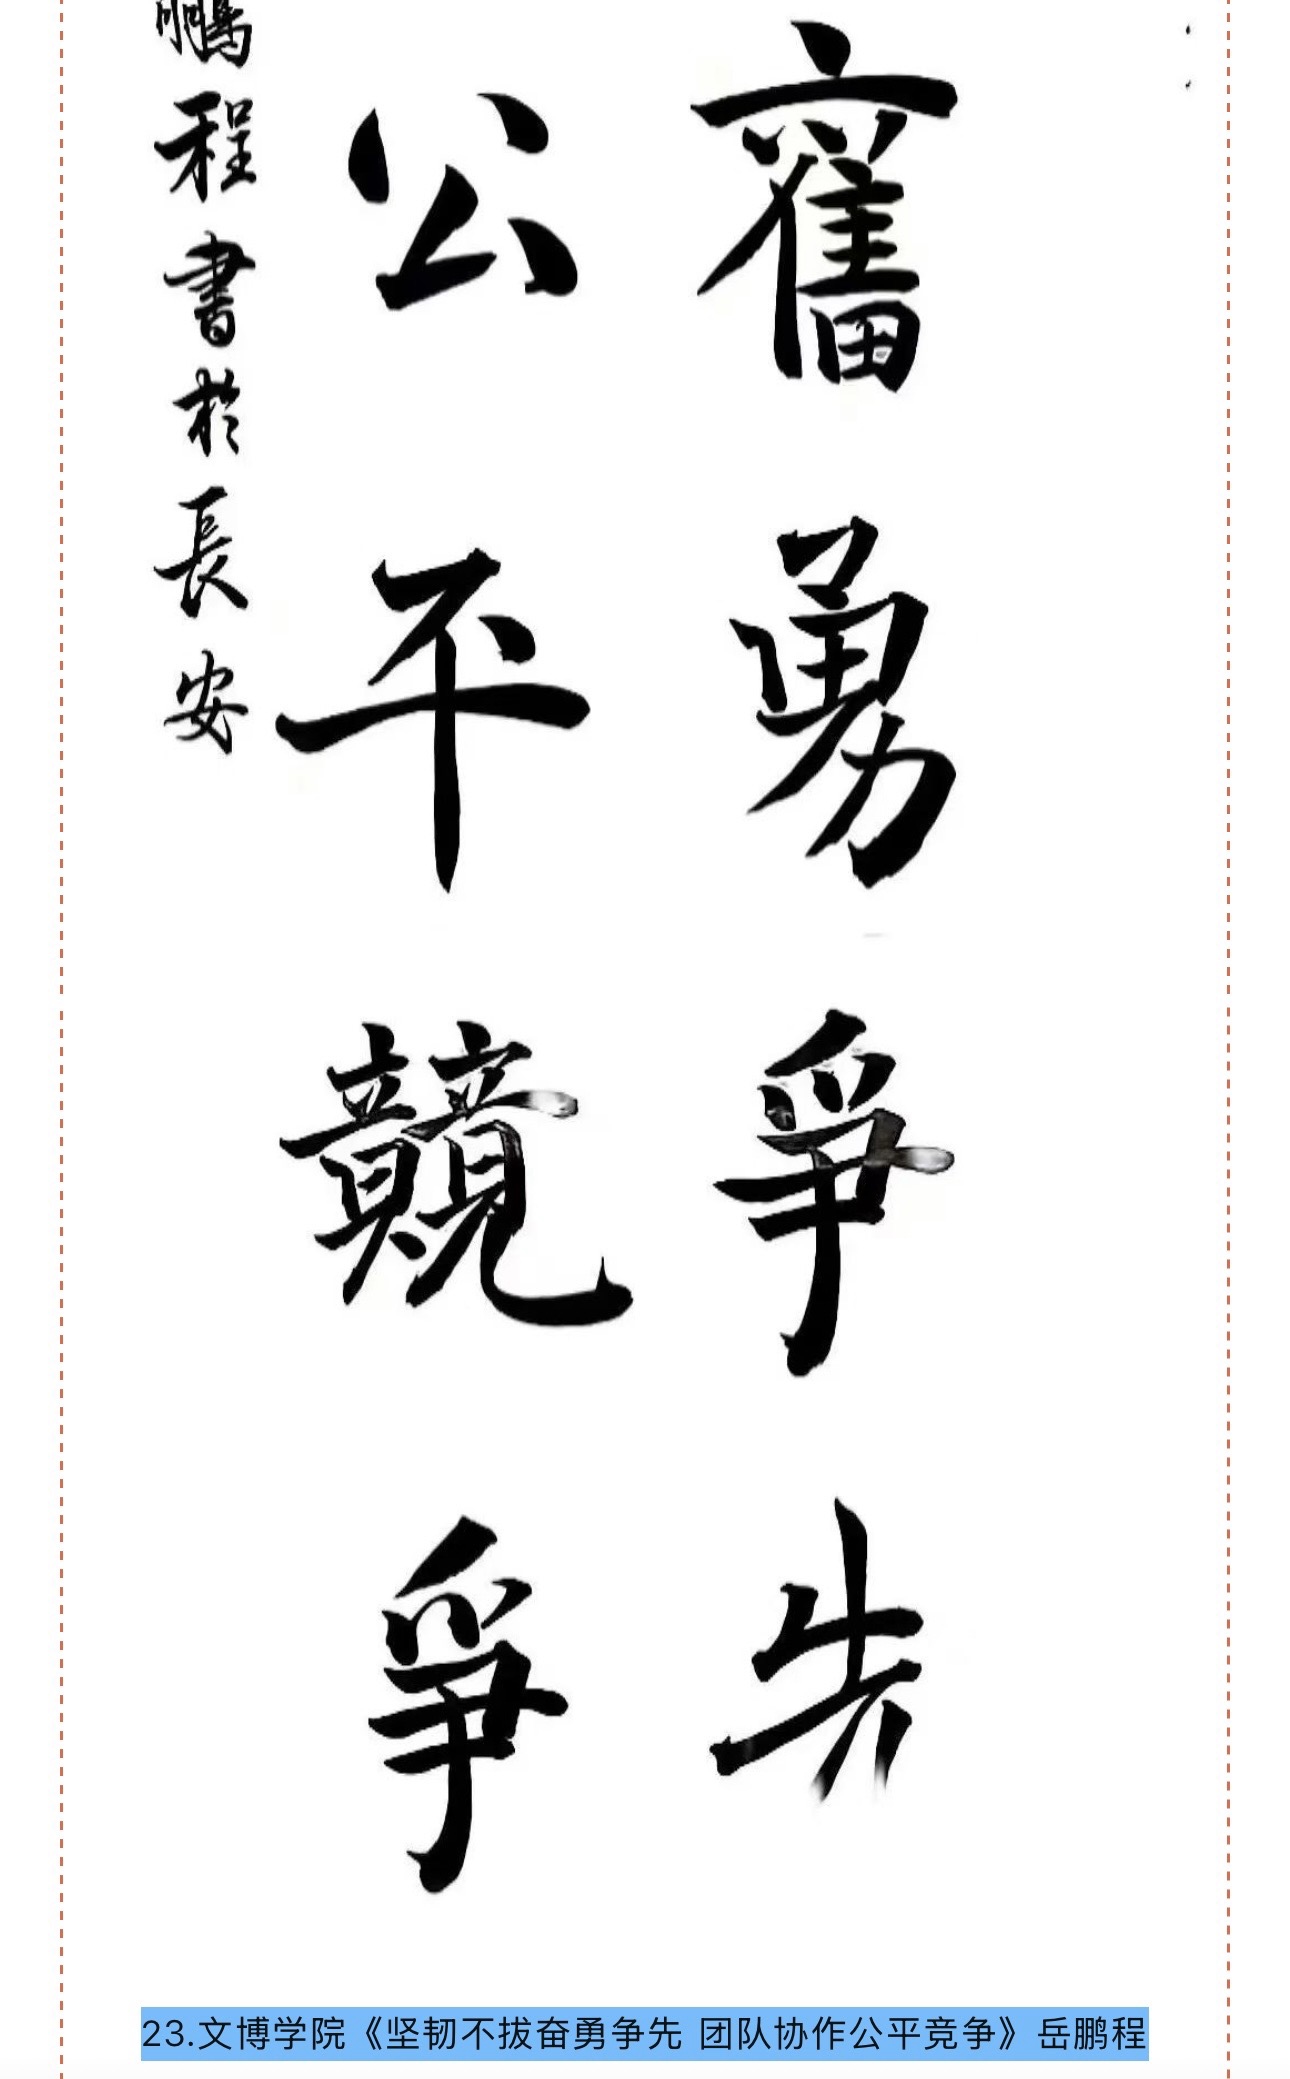 奮勇争先
公平競爭
鵬程書於長安
23.文博学院《坚韧不拔奋勇争先 团队协作公平竞争》岳鹏程